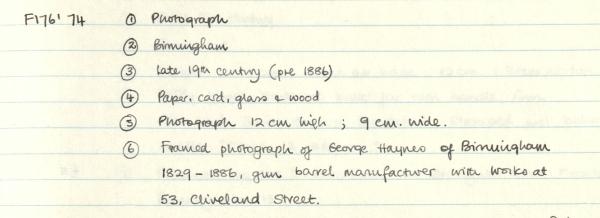 F176'74 ① Photograph
② Birmingham
③ Late 19th century (pre 1886)
④ Paper, card, glass & wood
⑤ Photograph 12 cm high ; 9 cm. wide.
⑥ Framed photograph of George Haynes of Birmingham
1829 - 1886, gun barrel manufacturer with works at
53, Cliveland Street.